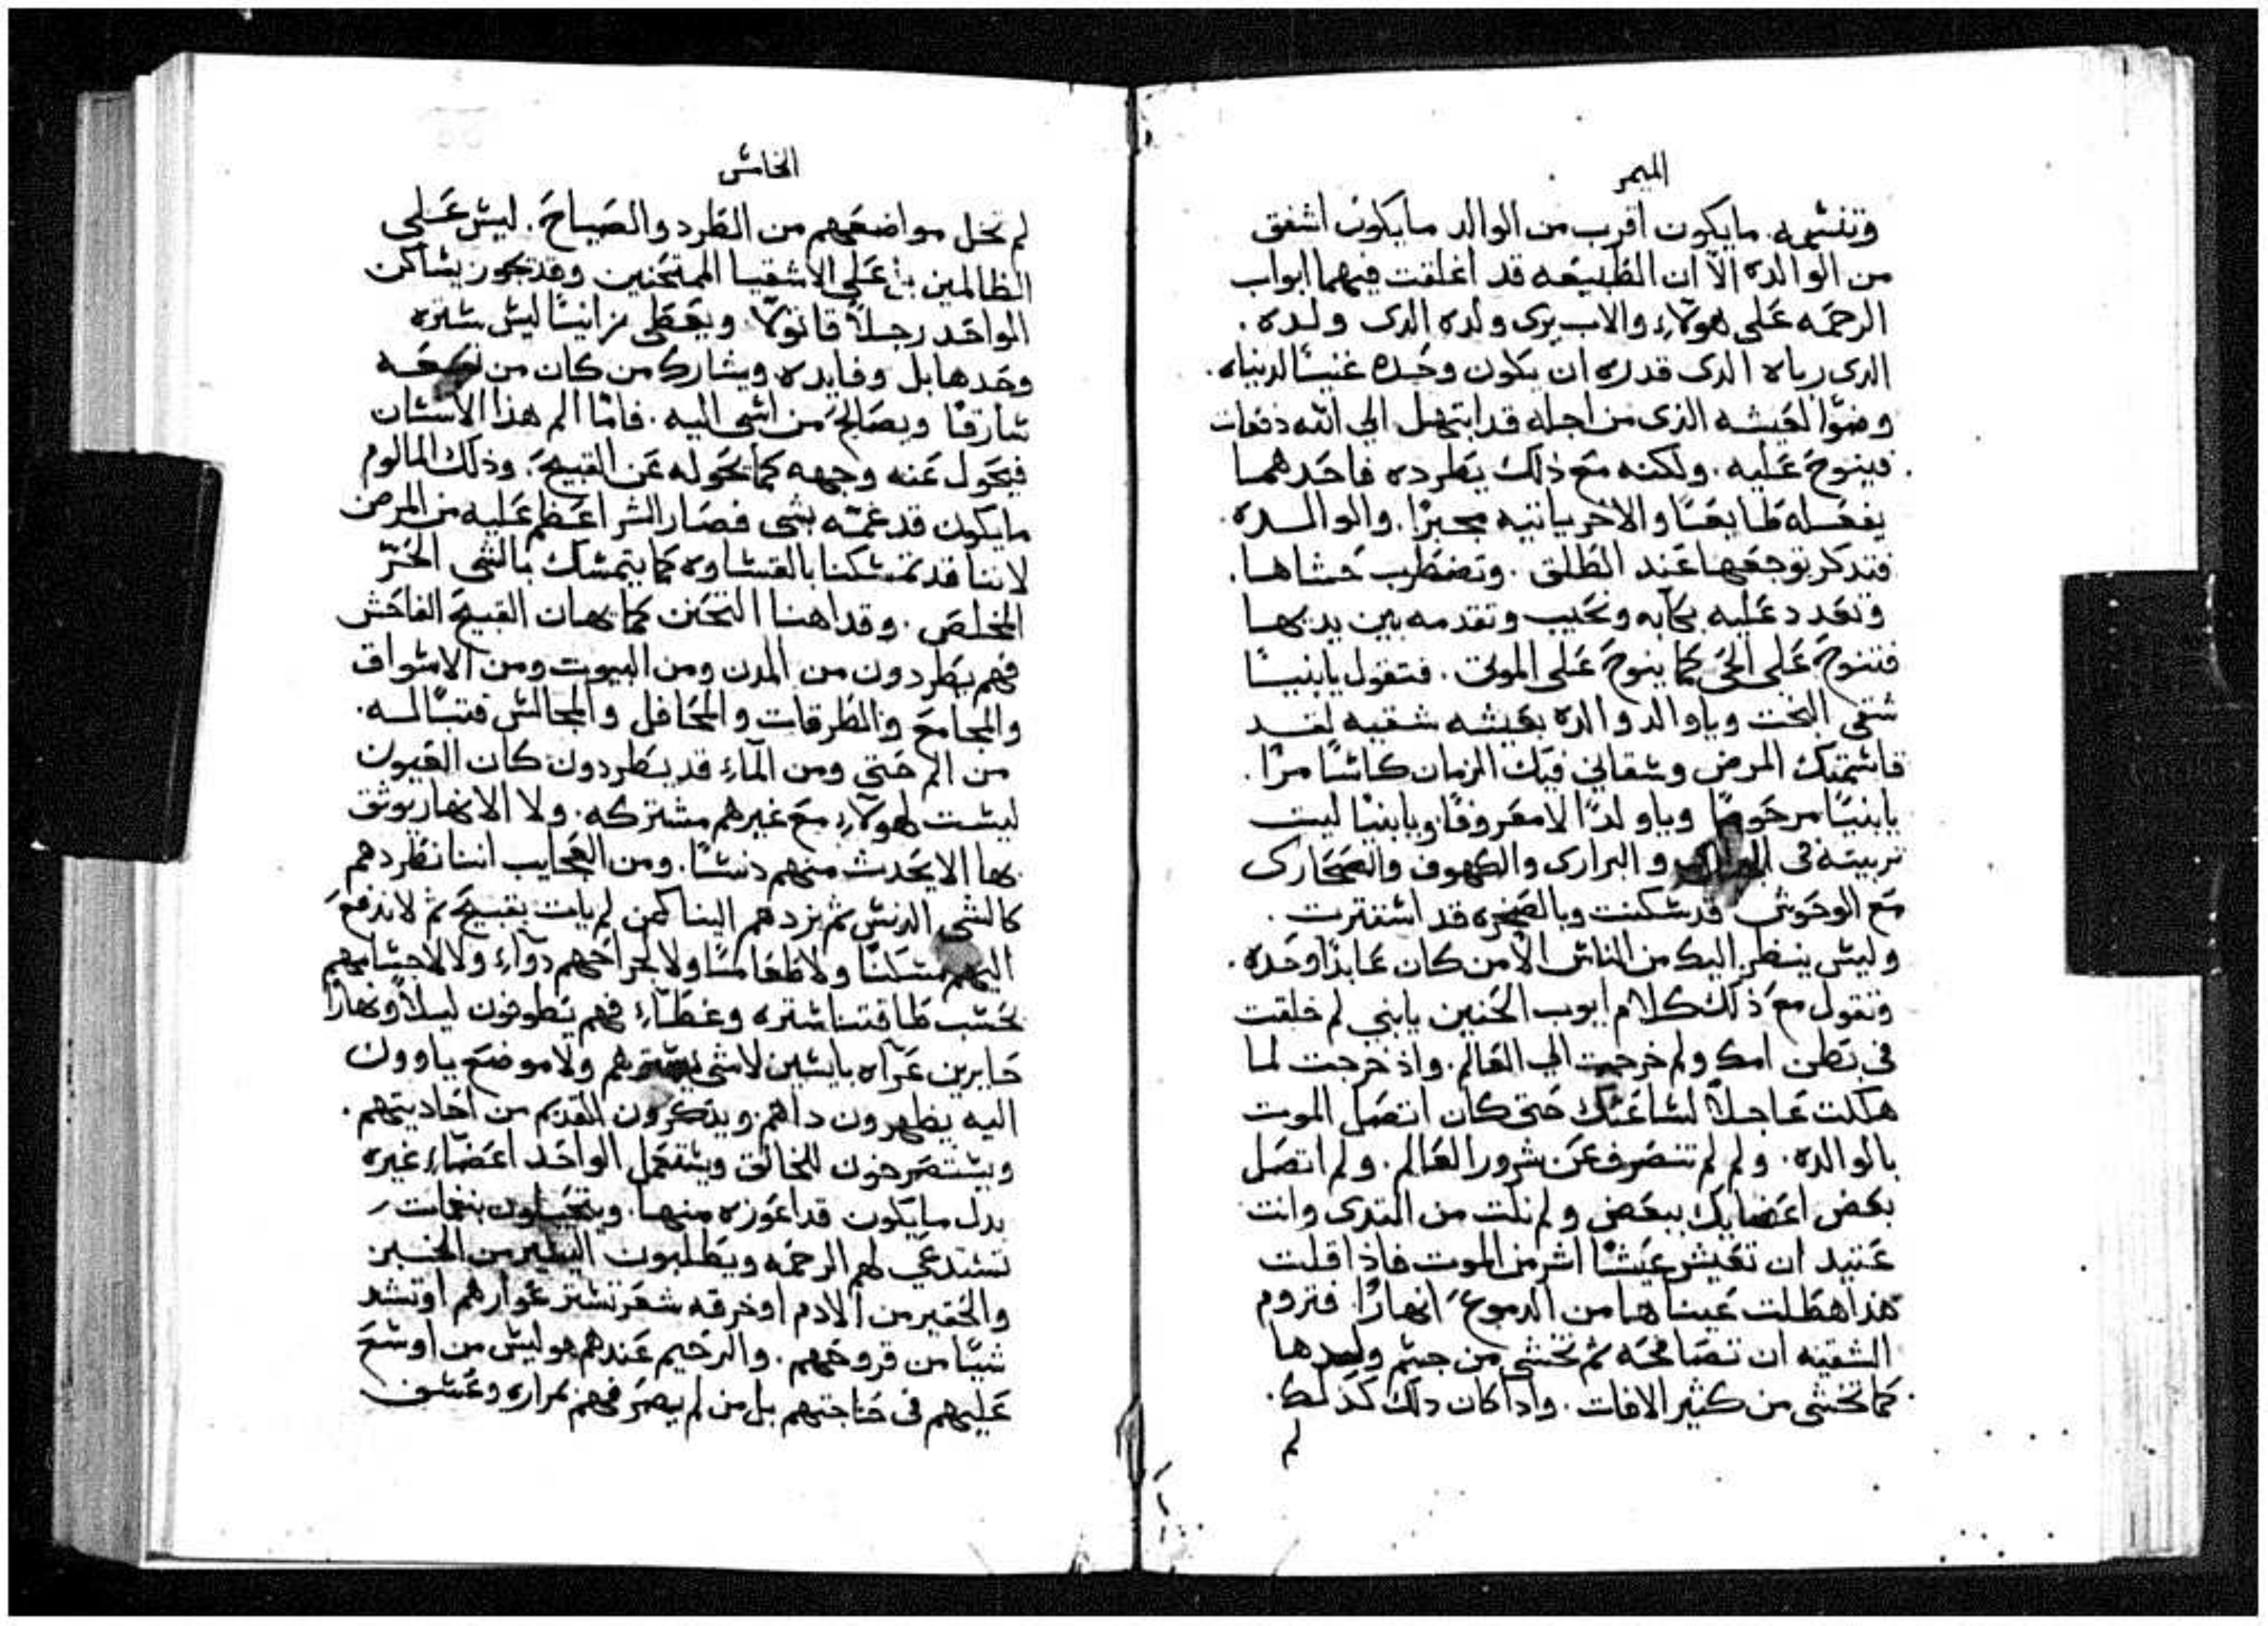 الميمر
وتنشمه. مايكون اقرب من الوالد مايكون اشفق
من الوالده الّا ان الطبيعه قد اغلقت فيهما ابواب
الرحمه على هولاء والاب يرى ولده الدى ولده.
الدى رباه الدى قدره ان يكون وحده غنيًا لدنياه.
وضوًا لعيشه الذى من اجله قد ابتهل الي الله دفعات
فينوح عليه. ولكنه مع ذلك يطرده فاحدهما
يفعله طايعًا والاخر ياتيه مجبرًا. والوالده
فتدكر توجعها عند الطلق. وتضطرب حشاها.
وتعدد عليه بكآبه ونحيب وتقدمه بين يديها
فتنوح على الحى كما ينوح على الموتى. فتقول يابنيًا
شقي البخت وياوالد والده بعيشه شقيه لقد
قاسمتك المرض وسقاني فيك الزمان كاسًا مرًا.
يابنيًا مرحومًا وياولدًا لا معروفًا ويابنيًا ليت
تربيته فى والبرارى والكهوف والصحارى
مع الوحوش قد سكنت وبالصخره قد استترت.
وليس ينظر اليك من الناس الّا من كان عابدًا وحده.
وتقول مع ذلك كلام ايوب الحنين يابني لم خلقت
فى بطن امك ولم خرجت الى العالم. واذ خرجت لما
هلكت عاجلًا لساعتك حتى كان اتصل الموت
بالوالده. ولم لم تنصرف عن شرور العالم. ولم اتصل
بعض اعضايك ببعض ولم نلت من الثدى وانت
عتيد ان تعيش عيشًا اشر من الموت فاذا قلت
هذا هطلت عيناها من الدموع انهارًا فتروم
الشقيه ان تصافحه ثم تخشى من جسم ولدها
كما تخشى من كثير الافات. واذا كان دلك كذلك.
لم
الخامس
لم تخل مواضعهم من الطرد والصياح. ليس على
الظالمين بل على الاشقيا الممتحنين وقد يجوز يساكن
الواحد رجلًا قاتولًا. ويعطى زانيًا ليس ستره
وحدها بل وفايده ويشارك من كان من
سارقًا ويصالح من اسى اليه. فامّا الم هذا الانسان
فيحول عنه وجهه كما يحوله عن القبيح. وذلك المالوم
مايكون قد غمّه بشى فصار الشر اعظم عليه من المرض
لاننا قد تمسكنا بالقساوه كما يتمسك بالشى الحرّ
المخلص. وقد اهنا التحنن كما يهان القبيح الفاحش
فهم يطردون من المدن ومن البيوت ومن الاسواق
والمجامع والطرقات والمحافل والمجالس فتبًا له.
من الم حتى ومن المآء قد يطردون كان العيون
ليست لهولآء مع غيرهم مشتركه. ولا الانهار يوثق
بها الا يحدث منهم دنسًا. ومن العجايب اننا نطردهم
كالشى الدنس ثم نردهم الينا كمن لم يات بقبيح ثم لا ندفع
اليهم مسكنًا ولا طعامًا ولا لجراحهم دوآء ولا لاجسامهم
بحسب طاقتنا ستره وغطآء فهم يطوفون ليلًا ونهارًا
حايرين عرآه بايسين لا شى يسترهم ولا موضع ياوون
اليه يظهرون داهم ويدكرون القديم من احاديثهم.
ويستصرخون للخالق ويستعمل الواحد اعضآء غيره
بدل مايكون قد اعوزه منها. بنغمات
تستدعى لهم الرحمه ويطلبون اليسير من الخبز
والحقير من الادم او خرقه شعر تستر عوارهم او تشد
شيًا من قروحهم. والرحيم عندهم هو ليس من اوسع
عليهم فى حاجتهم بل من لم يصرفهم بمراره وعسف